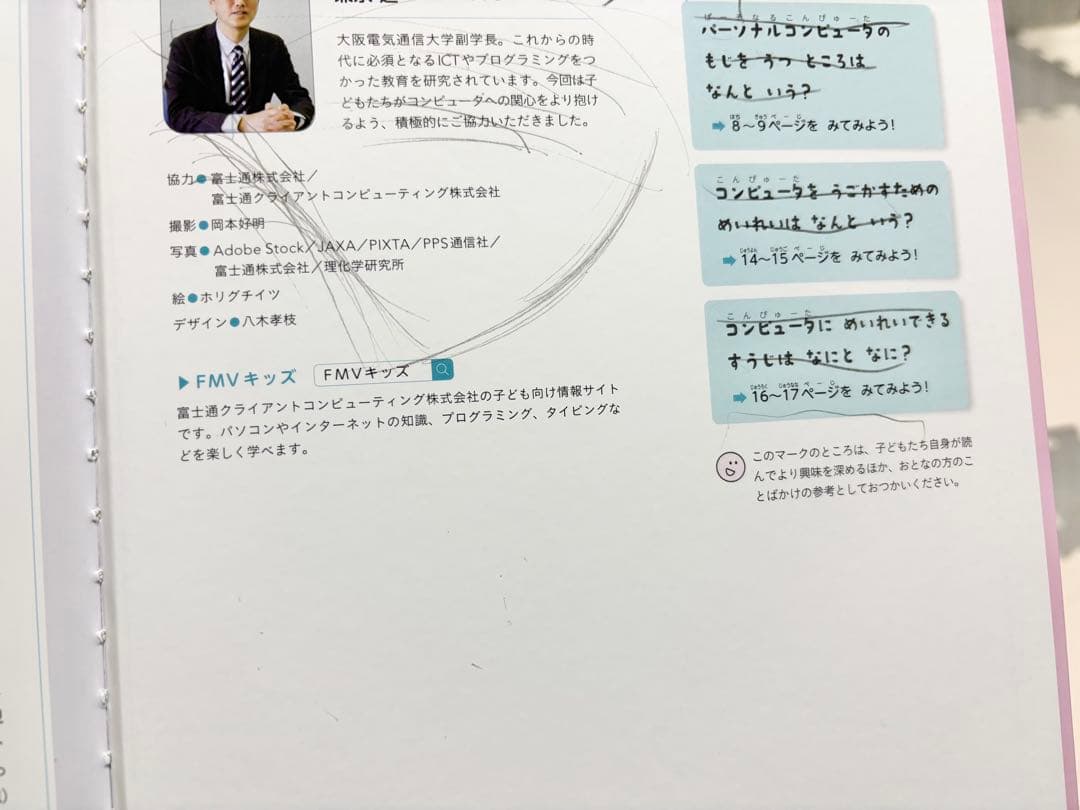 大阪電気通信大学副学長。これからの時
代に必須となるICTやプログラミングをつ
かった教育を研究されています。今回は子
どもたちがコンピュータへの関心をより抱け
るよう、積極的にご協力いただきました。
協力●富士通株式会社／
富士通クライアントコンピューティング株式会社
撮影●岡本好明
写真●Adobe Stock／JAXA／PIXTA／PPS通信社／
富士通株式会社／理化学研究所
絵●ホリグチイツ
デザイン●八木孝枝
▶FMVキッズ FMVキッズ
富士通クライアントコンピューティング株式会社の子ども向け情報サイト
です。パソコンやインターネットの知識、プログラミング、タイピングな
どを楽しく学べます。
ぱーそなるこんぴゅーた
パーソナルコンピュータの
もじを うつ ところは
なんと いう?
はち きゅうぺーじ
➡8〜9ページを みてみよう!
こんぴゅーた
コンピュータを うごかすための
めいれいは なんと いう?
じゅうよん じゅうごぺーじ
➡14〜15ページを みてみよう!
こんぴゅーた
コンピュータに めいれいできる
すうじは なにと なに?
じゅうろく じゅうななぺーじ
➡16〜17ページを みてみよう!
このマークのところは、子どもたち自身が読
んでより興味を深めるほか、おとなの方のこ
とばかけの参考としておつかいください。